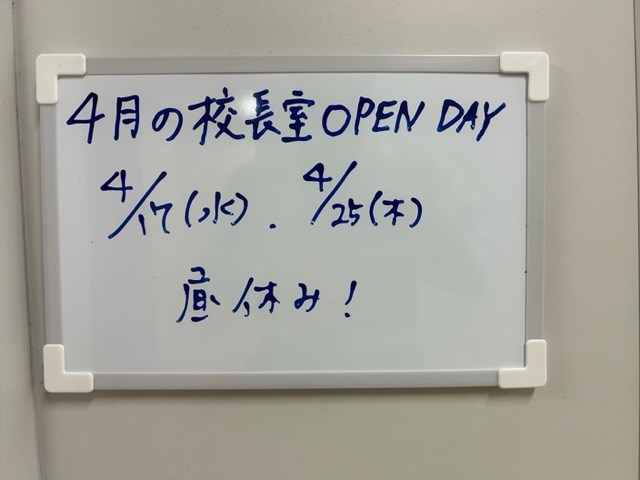 4月の校長室OPEN DAY
4/17(水). 4/25(木)
昼休み!